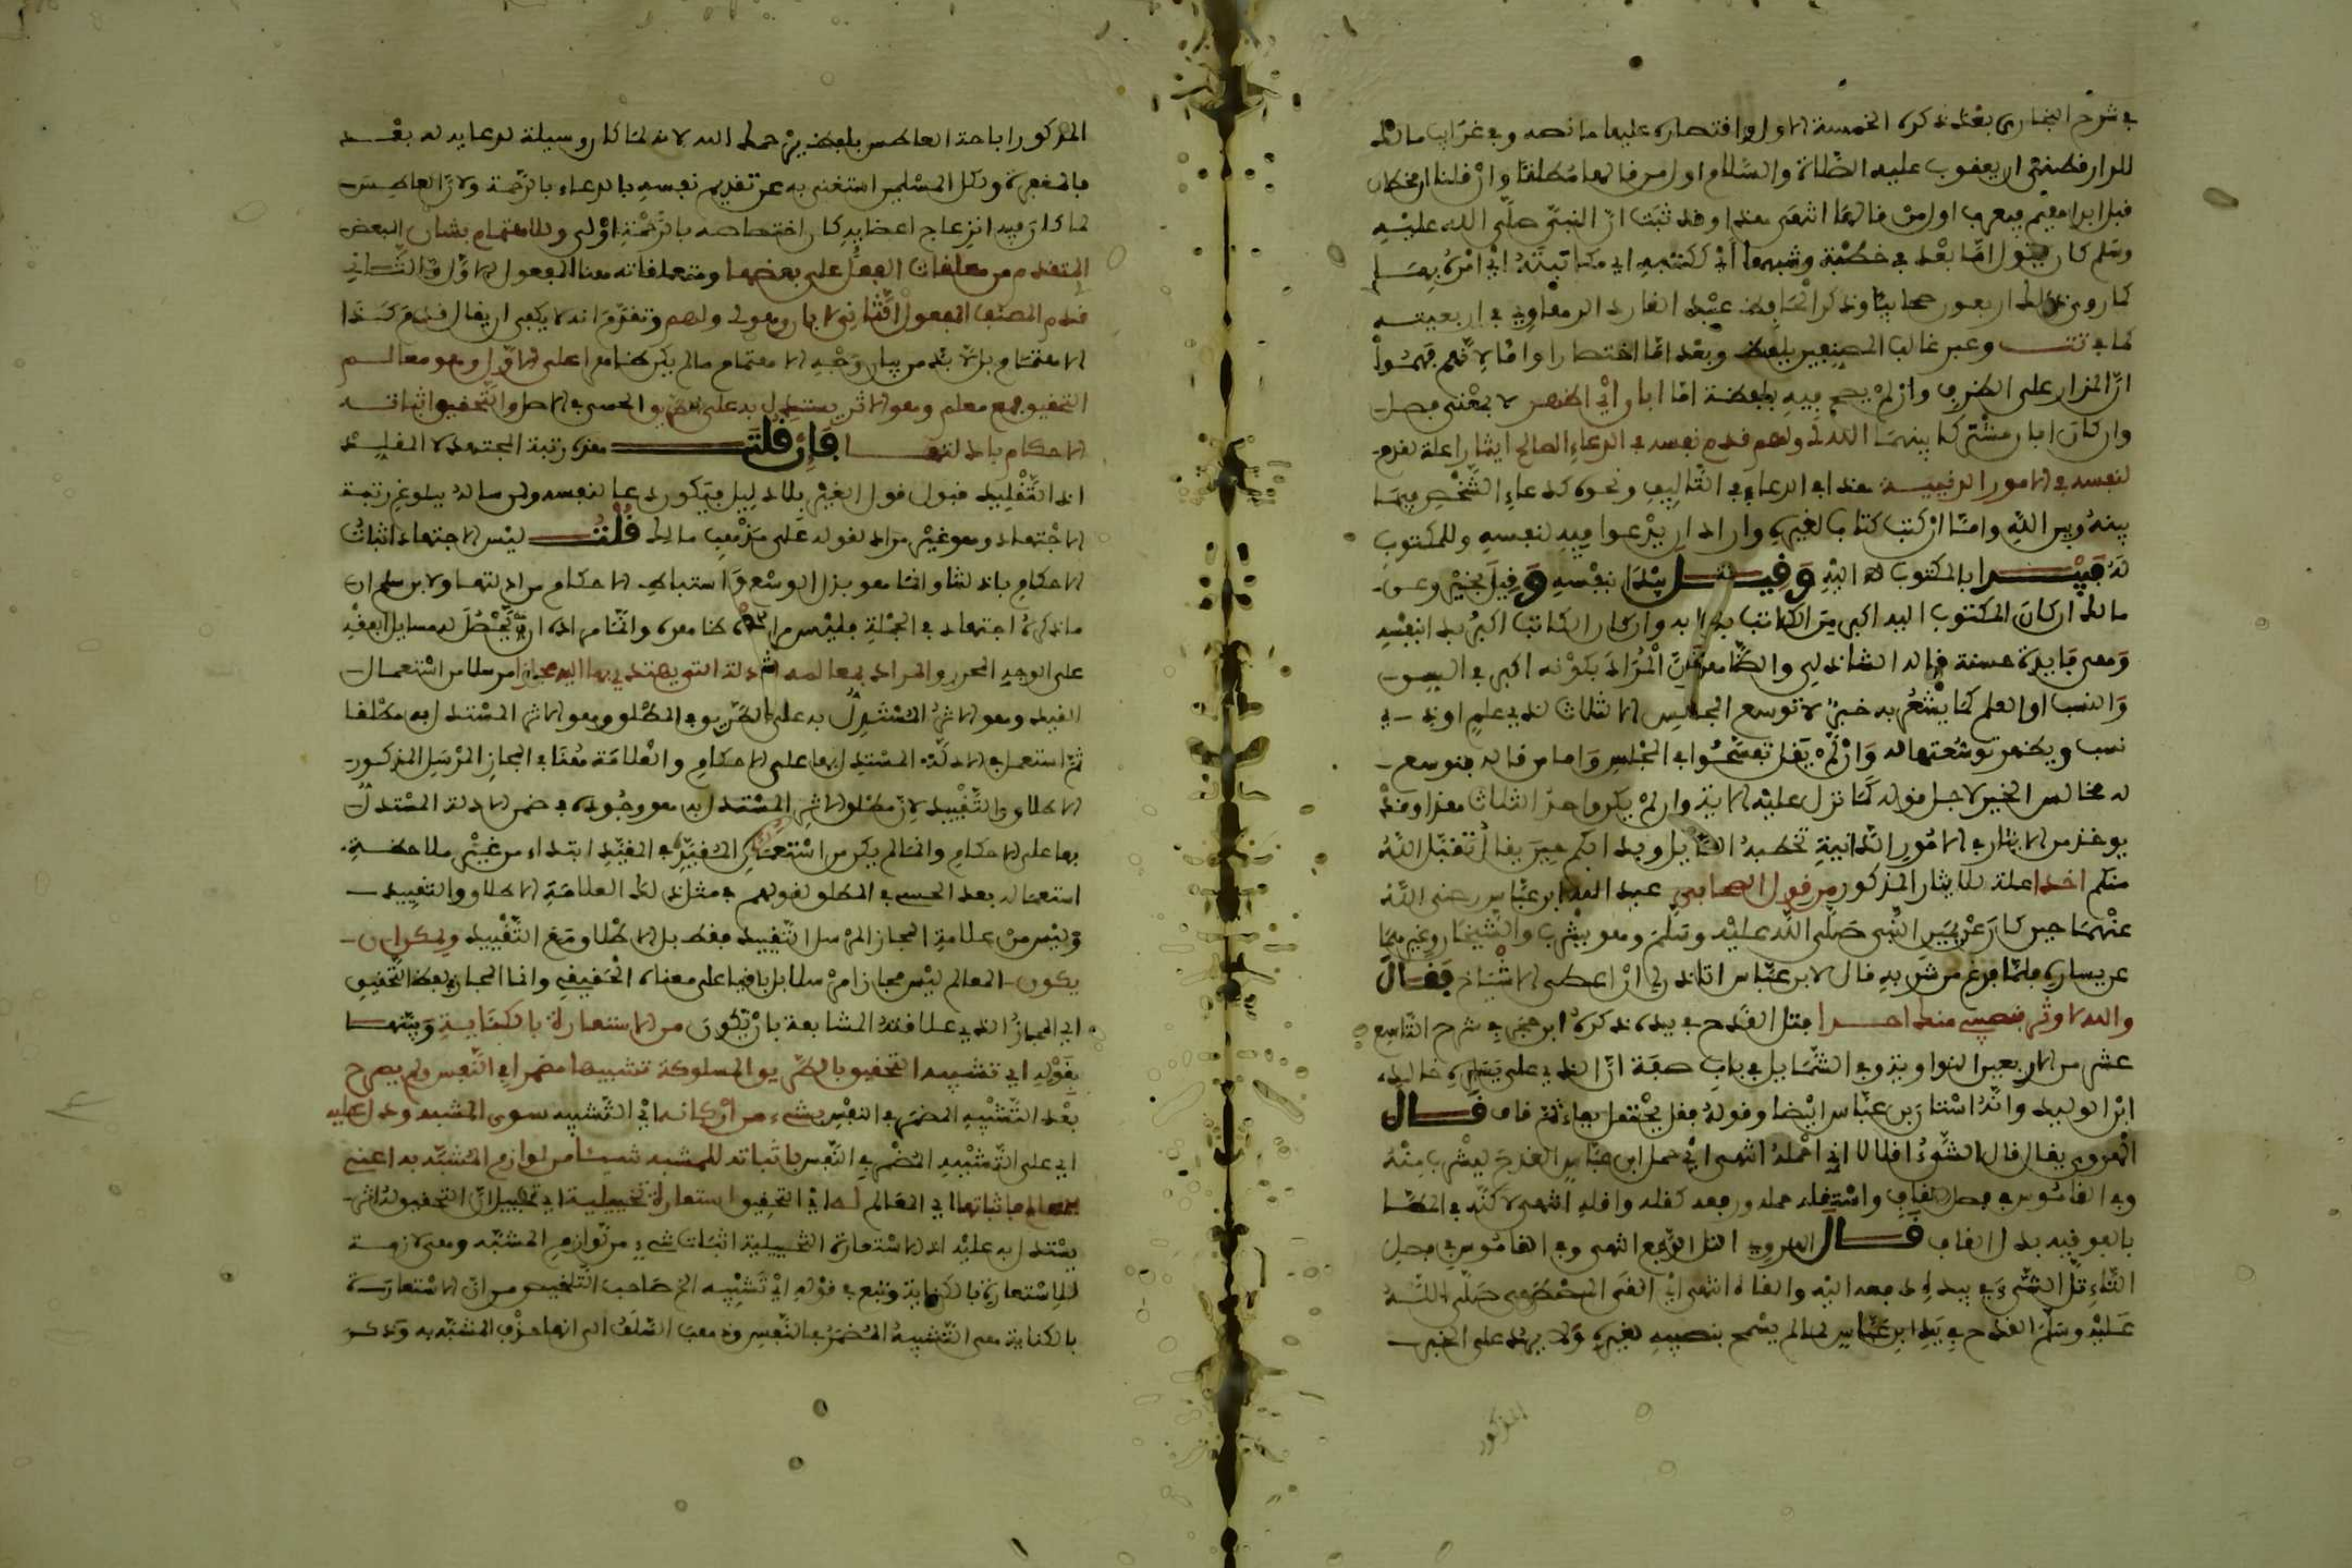 في شرح البخاري بعد ذكره الخمسة الاول واقتصاره عليها ما نصه وفي غرائب مالك
للدارقطني ان يعقوب عليه الصلاة والسلام اول من قالها مطلقا وان قلنا ان قحطان
قبل ابراهيم فيعرب اول من قالها انتهى هذا وقد ثبت ان النبي صلى الله عليه
وسلم كان يقول اما بعد في خطبة وشبهها اي ككتبه اي مكاتبته اي امره بها
كما روى ذلك اربعون صحابيا وذكر الحافظ عبد القادر الرهاوي في اربعينه
كما في تت وعبر غالب المصنفين بلفظ وبعد اما اختصارا واما لانهم فهموا
ان المدار على الظرف وان لم يصح فيه بلفظة اما ابان اي اظهر لا بمعنى فصل
وان كان ابان مشتركا بينهما الله لي ولهم قدم نفسه في الدعاء الصالح ايثارا علة لقدم
لنفسه في الامور الدينية هذا في الدعاء في التاليف ونحوه كدعاء الشخص فيما
بينه وبين الله واما ان كتب كتابا لغيره واراد ان يدعوا فيه لنفسه وللمكتوب
له فيبدا بالمكتوب له اليه وقيل يبدا بنفسه وقيل بخير وعن
مالك ان كان المكتوب اليه اكبر من الكاتب بدا به وان كان الكاتب اكبر بدا بنفسه
وهي فايدة حسنة قاله الشاذلي والظاهر ان المراد بكونه اكبر في السن
والنسب او العلم كما يشعر به خبر لا توسع المجالس الا لثلاث لذي علم او ذي
نسب ويظهر توسعتها له وان لم يقل تفسحوا في المجلس واما من قال فتوسع
له مخالس الخير لاجل قوله كما نزل عليه الاية وان لم يكن واحد الثلاث هذا وقد
يوخذ من الايثار في الامور الدنيية تخطية القايل وبدا بكم حين يقال تقبل الله
منكم اخدا علة للايثار المذكور من قول الصحابي عبد الله ابن عباس رضي الله
عنهما حين كان عن يمين النبي صلى الله عليه وسلم وهو يشرب والشيخان وغيرهما
عن يساره فلما فرغ من شربه قال لابن عباس اتاذن لي ان اعطى الاشياخ فقال
والله لا اوثر بنصيبي منك احدا فتل القدح في يده ذكره ابن حجر في شرح التاسع
عشر من الاربعين النواوية وفي الشمايل في باب صفة ان الذي على يساره خالد
ابن الوليد وانه استاذن ابن عباس ايضا وقوله فقل يحتمل بفاء ثم قاف قال
الهروي يقال قال الشيء اقلالا اي احمله انتهى اي حمل ابن عباس القدح ليشرب منه
وفي القاموس في فصل القاف واستقله حمله ورفعه كقله واقله انتهى لاكنه في الخطا
بالفوقية بدل القاف قال الهروي التل الرفع انتهى وفي القاموس في فصل
التاء تل الشيء في يده دفعه اليه والقاه انتهى اي القى المصطفى صلى الله
عليه وسلم القدح في يد ابن عباس لما لم يسمح بنصيبه لغيره ولا يرد على الخبر
المذكور
المذكور اباحة العاطس بلفظ يرحمك الله لانه لما كان وسيلة لدعايه له بعد
بالمغفرة ولكل المسلمين استغنى به عن تقديم نفسه بالدعاء بالرحمة ولان العاطس
لما كان فيه انزعاج اعضايه كان اختصاصه بالرحمة اولى وللاهتمام بشان البعض
المتقدم من معلقات الفعل على بعضها ومتعلقاته هنا المفعول الاول والثاني
قدم المصنف المفعول الثاني لابان وهو لي ولهم وتقدم انه لا يكفي ان يقال قدم كذا
الاهتمام بل لا بد من بيان وجه الاهتمام مالم يكن ظاهرا على الاول وهو معالم
التحقيق جمع معلم وهو الاثر يستدل به على الطريق الحسي في الاصل والتحقيق اثبات
الاحكام بادلتها فان قلت هذه رتبة المجتهد لا المقلد
اذ التقليد قبول قول الغير بلا دليل فيكون دعا لنفسه ولمن ساله ببلوغ رتبة
الاجتهاد وهو غير مراد لقوله على مذهب مالك قلت ليس الاجتهاد اثبات
الاحكام بادلتها وانما هو بذل الوسع في استنباط الاحكام من ادلتها ولا بن سلم ان
ما ذكره اجتهاد في الجملة فليس مراده ظاهره وانما مراده ان تحصل له مسايل الفقه
على الوجه المحرر والمراد بمعالمه الادلة التي يهتدي بها اليه مجازا مرسلا من استعمال
القيد وهو الاثر المستدل به على الطريق في المطلق وهو الاثر المستدل به مطلقا
ثم استعمل في الادلة المستدل بها على الاحكام والعلاقة هنا في المجاز المرسل المذكور
الاطلاق والتقييد لان مطلق الاثر المستدل به هو وجوده في ضمن الادلة المستدل
بها على الاحكام وانما لم يكن من استعمال المقيد في المقيد ابتداء من غير ملاحظة
استعماله بعد الحسي في المطلق لقولهم في مثل ذلك العلاقة الاطلاق والتقييد
وليس من علاقة المجاز المرسل التقييد فقط بل الاطلاق مع التقييد ويمكن ان
يكون المعالم ليس مجازا مرسلا بل باقيا على معناه الحقيقي وانما المجاز في لفظ التحقيق
اي المجاز الذي علاقته المشابهة بان يكون من الاستعارة بالكناية وبينها
بقوله اي تشبيه التحقيق بالطريق المسلوكة تشبيها مضمرا في النفس ولم يصرح
بعد التشبيه المضمر في النفس بشيء من اركانه اي التشبيه سوى المشبه ودل عليه
اي على التشبيه المضمر في النفس باثباته للمشبه شيئا من لوازم المشبه به اعني
المعالم فاثباتها اي المعالم له اي التحقيق استعارة تخييلية اي تخييل ان التحقيق له اثر
يستدل به عليه اذ الاستعارة التخييلية اثبات شيء من لوازم المشبه وهي لازمة
للاستعارة بالكناية وتبع في قوله اي تشبيه الخ صاحب التلخيص من ان الاستعارة
بالكناية هي التشبيه المضمر في النفس ومذهب السلف الى انها حذف المشبه به وذكر